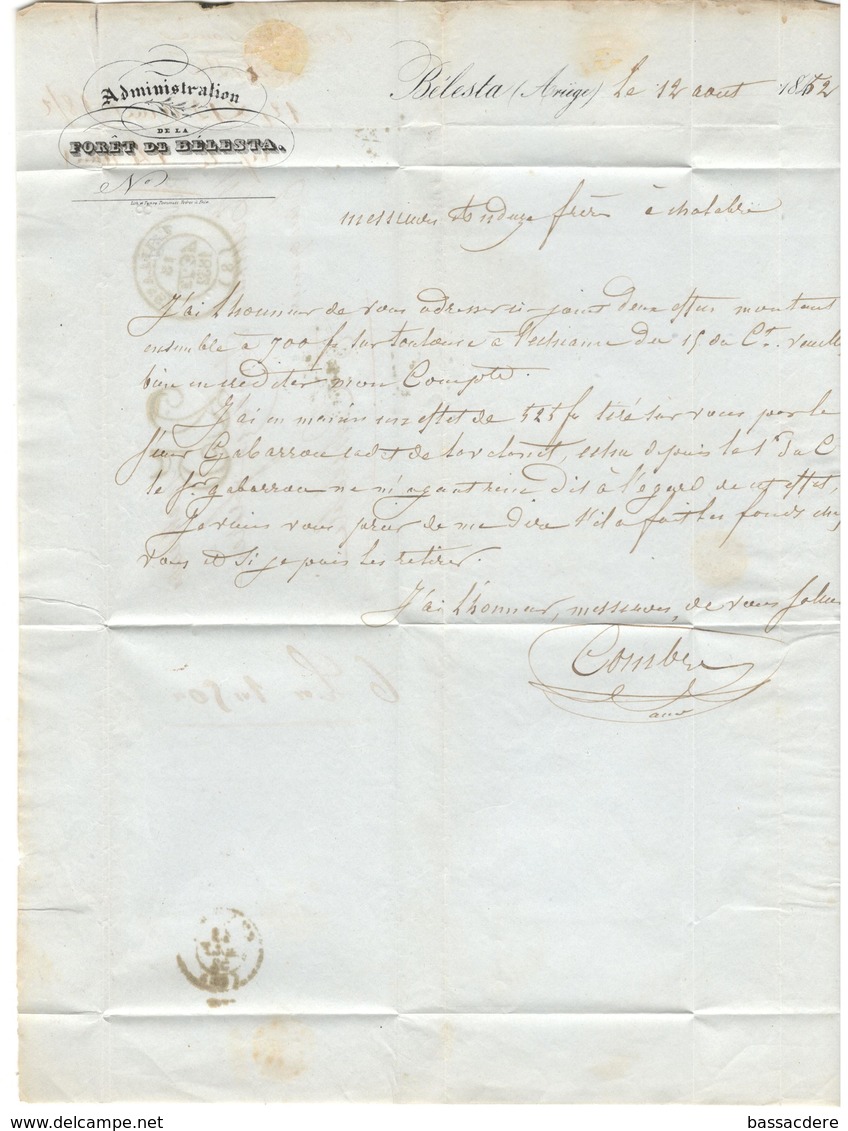 Administration
DE LA
FORÊT DE BÉLESTA.
N°
Bélesta (Ariège) Le 12 aout 1852
messieurs Anduze frères à chalabre
J'ai l'honneur de vous adresser ci-joint deux effets montant
ensemble à 700 f sur toulouse à l'echeance du 15 du Ct. veuillez
bien en créditer mon Compte.
J'ai en mains un effet de 525 f tiré sur vous par le
sieur Gabarrou cadet de Lavelanet, echu depuis le 1er du C
le Sr. gabarrou ne m'ayant rien dit à l'égard de cet effet,
Je viens vous prier de me dire s'il a fait les fonds chez
vous et si je puis les retirer.
J'ai l'honneur, messieurs, de vous saluer
Combes
bassacdere